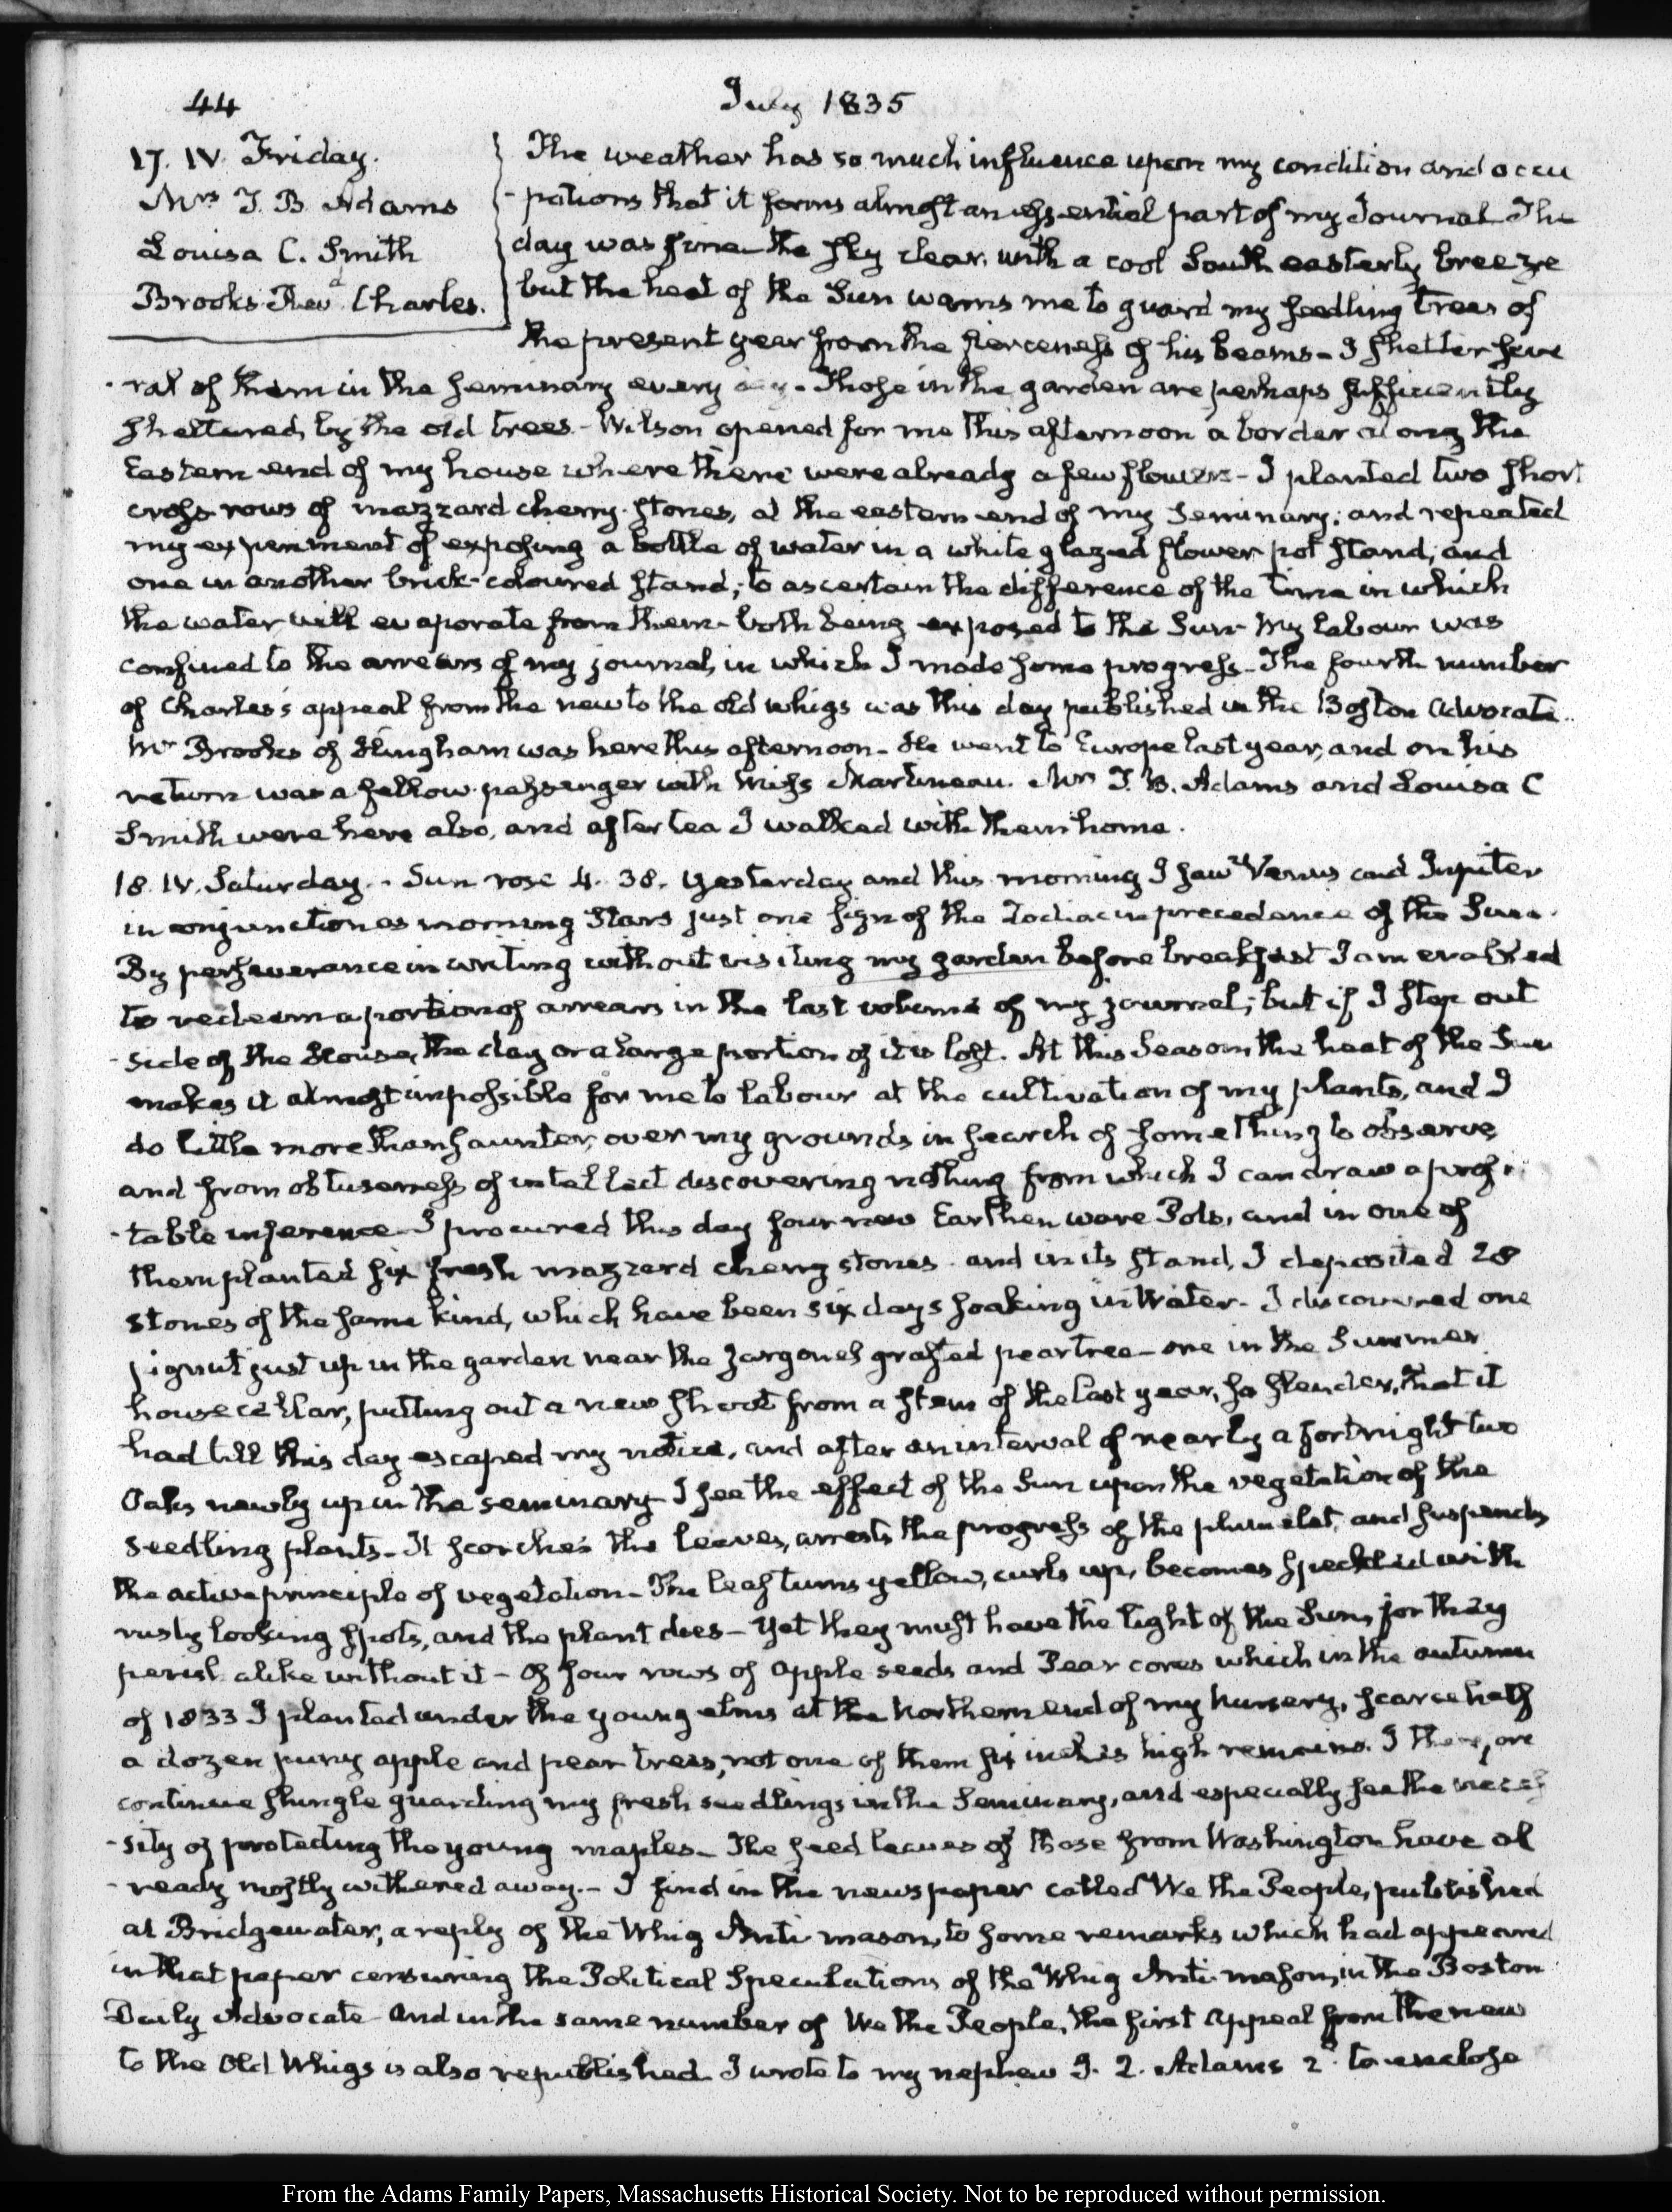 44
July 1835
17. IV. Friday.
Mrs T. B. Adams
Louisa C. Smith
Brooks Revd Charles.
The weather has so much influence upon my condition and occu
-pations that it forms almost an essential part of my Journal. The
day was fine the sky clear, with a cool South easterly breeze
but the heat of the Sun warns me to guard my seedling trees of
the present year from the fierceness of his beams - I shelter seve
-ral of them in the Seminary every day - Those in the garden are perhaps sufficiently
sheltered, by the old trees - Wilson opened for me this afternoon a border along the
Eastern end of my house where there were already a few flowers - I planted two short
cross rows of mazzard cherry-stones, at the eastern end of my Seminary; and repeated
my experiment of exposing a bottle of water in a white glazed flower pot stand, and
one in another brick-coloured stand; to ascertain the difference of the time in which
the water will evaporate from them - both being exposed to the Sun - My labour was
confined to the arrears of my journal, in which I made some progress - The fourth number
of Charles's appeal from the new to the old whigs was this day published in the Boston Advocate.
Mr Brooks of Hingham was here this afternoon - He went to Europe last year, and on his
return was a fellow-passenger with Miss Martineau. Mrs T. B. Adams and Louisa C
Smith were here also, and after tea I walked with them home.
18. IV. Saturday. - Sun rose 4. 38. Yesterday and this morning I saw Venus and Jupiter
in conjunction as morning Stars just one sign of the Zodiac in precedence of the Sun.
By perseverance in writing without visiting my garden before breakfast I am enabled
to redeem a portion of arrears in the last volume of my journal; but if I step out
-side of the House, the day or a large portion of it is lost. At this Season the heat of the Sun
makes it almost impossible for me to labour at the cultivation of my plants, and I
do little more than saunter, over my grounds in search of something to observe,
and from obtuseness of intellect discovering nothing from which I can draw a profi
-table inference - I procured this day four new Earthen ware Pots, and in one of
them planted six fresh mazzard cherry stones and in its stand, I deposited 28
stones of the same kind, which have been six days soaking in Water - I discovered one
pignut just up in the garden near the Jargonel grafted pear tree - one in the Summer
house cellar, putting out a new shoot from a stem of the last year, so slender, that it
had till this day escaped my notice, and after an interval of nearly a fortnight two
Oaks newly up in the seminary - I see the effect of the Sun upon the vegetation of the
seedling plants - It scorches the leaves, arrests the progress of the plumelet, and suspends
the active principle of vegetation - The leaf turns yellow, curls up, becomes speckled with
rusty looking spots, and the plant dies - Yet they must have the light of the Sun, for they
perish alike without it - Of four rows of apple seeds and Pear cores which in the autumn
of 1833 I planted under the young elms at the Northern end of my Nursery, scarce half
a dozen puny apple and pear trees, not one of them six inches high remains. I therefore
continue shingle guarding my fresh seedlings in the Seminary, and especially see the neces
-sity of protecting the young maples - The seed leaves of those from Washington have al
-ready mostly withered away. - I find in the newspaper called We the People, published
at Bridgewater, a reply of the Whig Anti mason, to some remarks which had appeared
in that paper censuring the Political Speculations of the Whig Anti-mason, in the Boston
Daily Advocate - And in the same number of We the People, the first Appeal from the new
to the Old Whigs is also republished. I wrote to my nephew J. Q. Adams 2d. to enclose
From the Adams Family Papers, Massachusetts Historical Society. Not to be reproduced without permission.